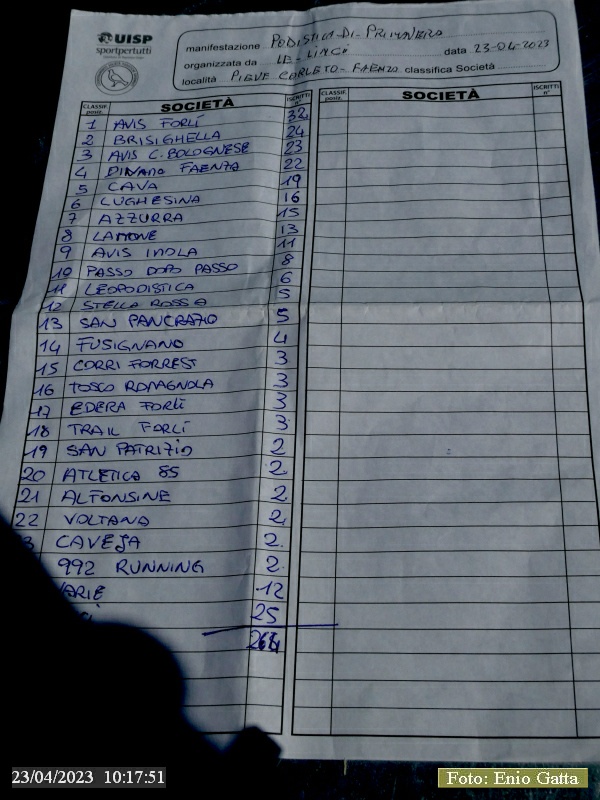 UISP
sportpertutti
manifestazione PODISTICA DI PRIMAVERA
organizzata da LE LINCI data 23-04-2023
località PIEVE CORLETO - FAENZA classifica Società
CLASSIF. posiz. SOCIETÀ ISCRITTI n° CLASSIF. posiz. SOCIETÀ ISCRITTI n°
1 AVIS FORLÍ 32
2 BRISIGHELLA 24
3 AVIS C. BOLOGNESE 23
4 DINAMO FAENZA 22
5 CAVA 19
6 LUGHESINA 16
7 AZZURRA 15
8 LAMONE 13
9 AVIS IMOLA 11
10 PASSO DOPO PASSO 8
11 LEOPODISTICA 6
12 STELLA ROSSA 5
13 SAN PANCRAZIO 5
14 FUSIGNANO 4
15 CORRI FORREST 3
16 TOSCO ROMAGNOLA 3
17 EDERA FORLÍ 3
18 TRAIL FORLÍ 3
19 SAN PATRIZIO 2
20 ATLETICA 85 2
21 ALFONSINE 2
22 VOLTANA 2
3 CAVEJA 2
992 RUNNING 2
ARIE 12
25
23/04/2023 10:17:51
Foto: Enio Gatta